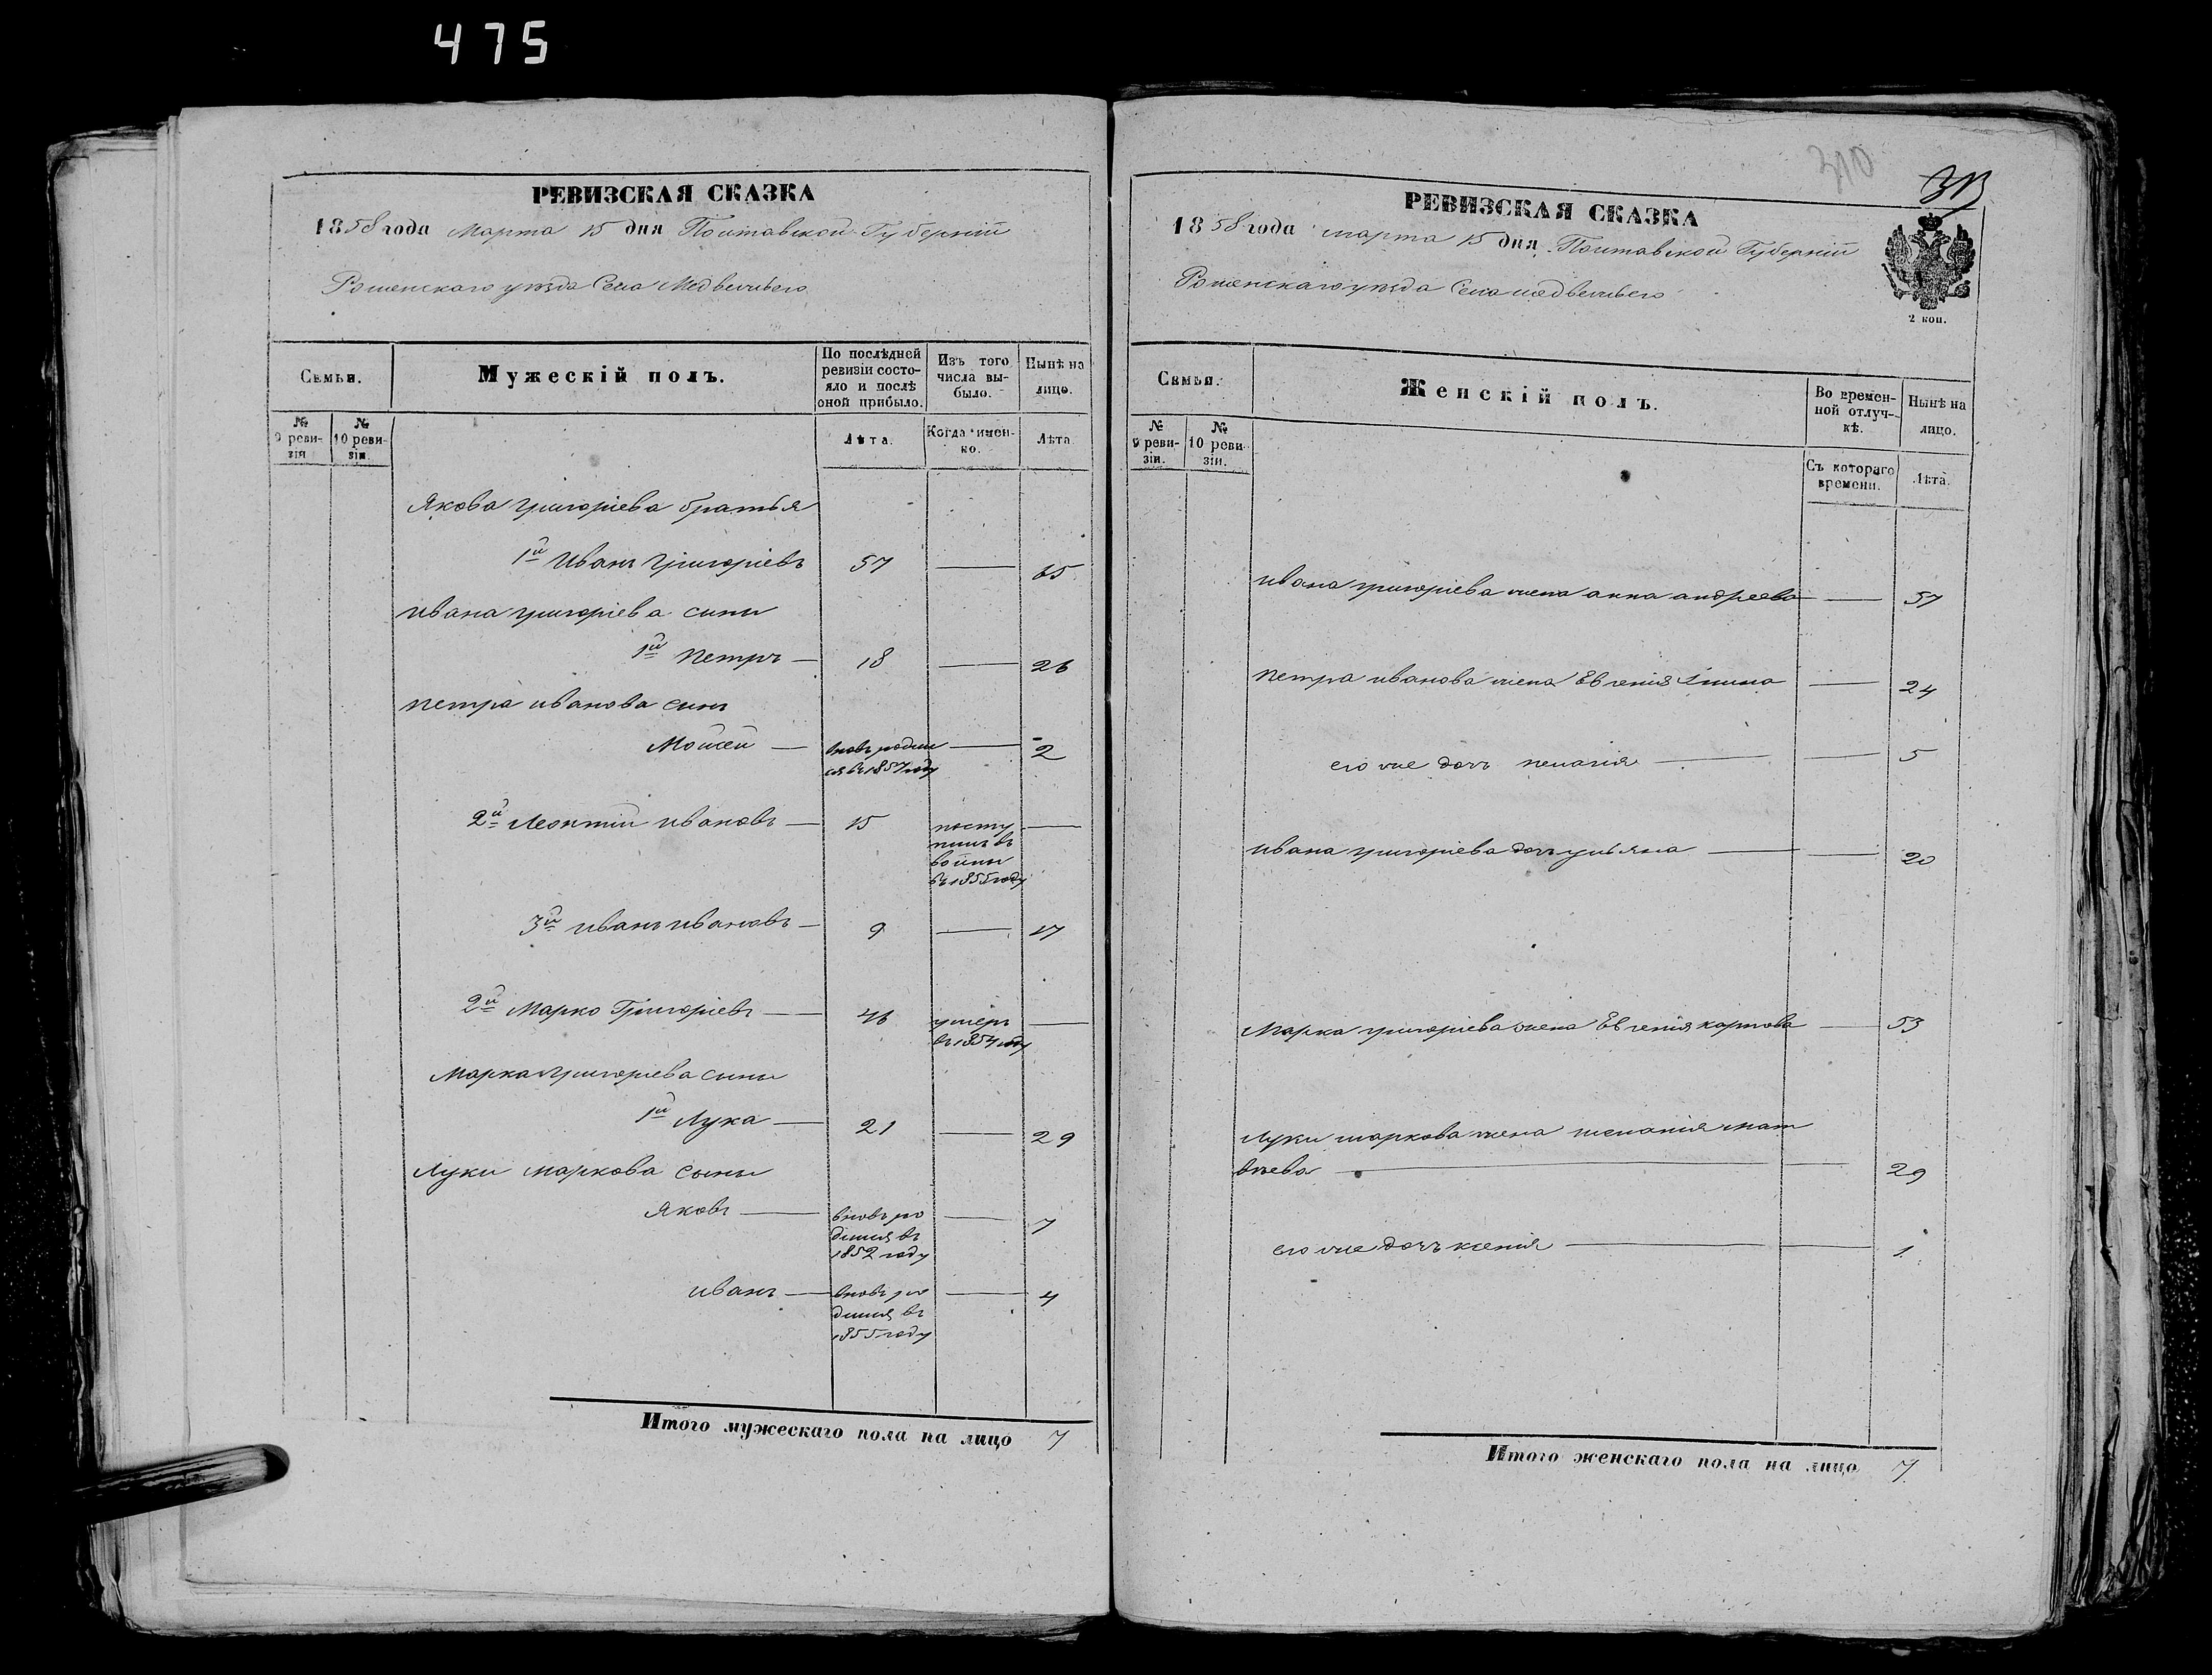 475
310
РЕВИЗСКАЯ СКАЗКА
1858 года Марта 15 дня Полтавской Губерніи
Роменскаго уѣзда Села Медвежьего
Семьи.
Мужескій полъ.
По послѣдней ревизіи состояло и послѣ оной прибыло.
Изъ того числа выбыло.
Нынѣ на лицо.
№ 9 ревизіи
№ 10 ревизіи.
Лѣта.
Когда именно.
Лѣта
Якова григоріева братья
1й Иванъ Григоріевъ 57 — 65
ивана григоріева сыны
1й Петръ — 18 — 26
петра иванова сынъ
Моисей — вновь родил
ся въ 1857 году — 2
2й Леонтий ивановъ — 15 посту
пилъ въ
войны
въ 1855 году —
3й иванъ ивановъ — 9 — 17
2й Марко Григоріевъ — 46 умеръ
въ 1854 году —
Марка григоріева сыны
1й Лука — 21 — 29
Луки маркова сыны
Яковъ — вновь ро
дился въ
1852 году — 7
иванъ — вновь ро
дился въ
1855 году — 4
Итого мужескаго пола на лицо 7
РЕВИЗСКАЯ СКАЗКА
1858 года марта 15 дня Полтавской Губерніи
Роменскаго уѣзда Села медвежьего
2 коп.
Семьи.
Женскій полъ.
Во временной отлучкѣ.
Нынѣ на лицо.
№ 9 ревизіи.
№ 10 ревизіи.
Съ котораго времени.
Лѣта.
ивана григоріева жена анна андреева — 57
петра иванова жена Евгенія — 24
его же дочь пелагія — 5
ивана григоріева дочь ульяна — 20
Марка григоріева жена Евгенія карпова — 53
Луки маркова жена мат
вѣева — 29
его же дочь ксенія — 1
Итого женскаго пола на лицо 7